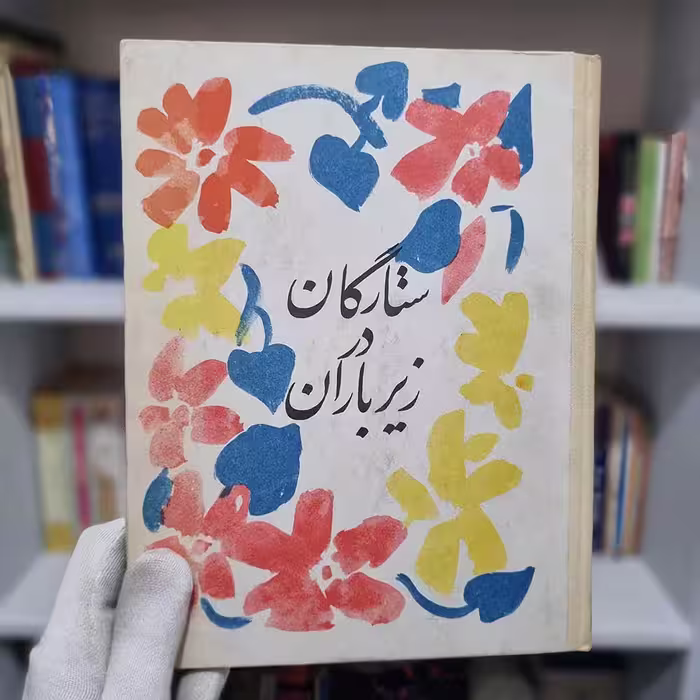 ستارگان
در
زیر باران